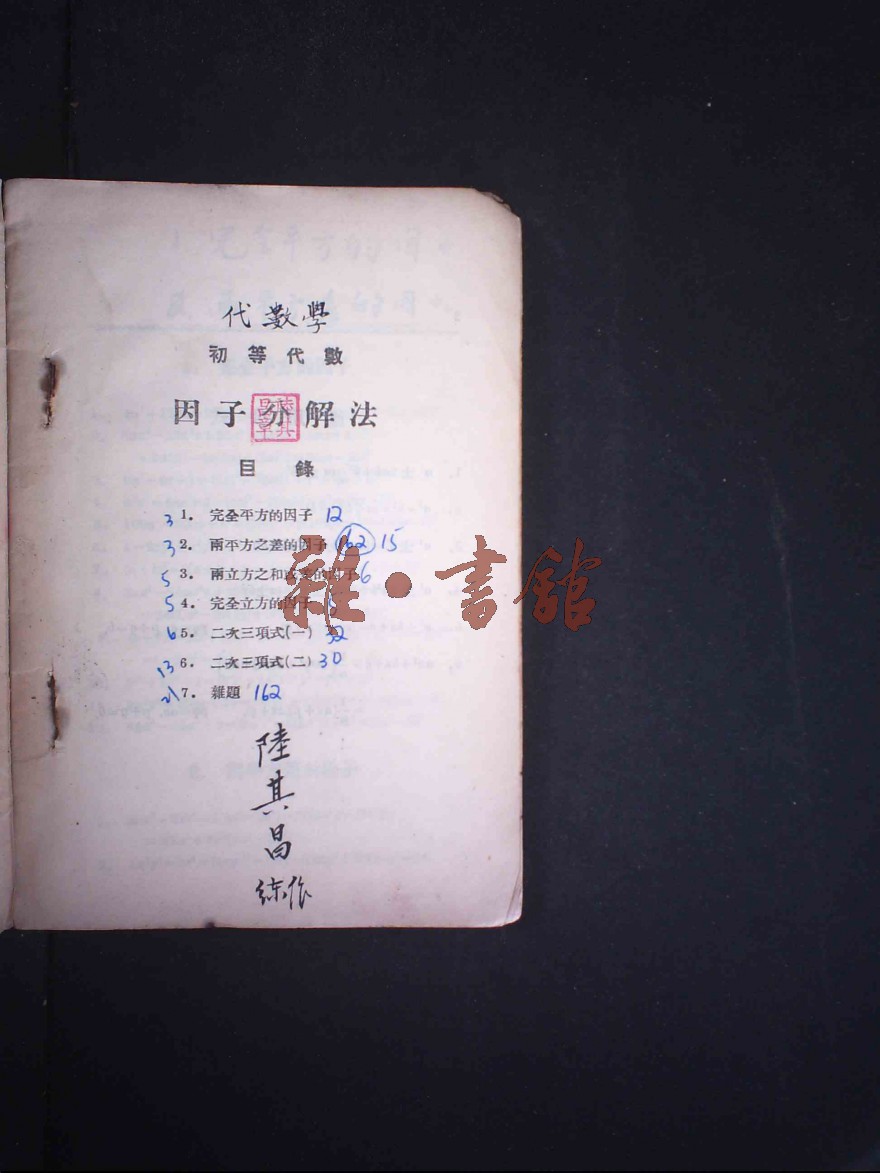 代數學
初等代數
因子分解法
陸其昌章
目錄
3 1. 完全平方的因子 12
3 2. 兩平方之差的因子 62 15
5 3. 兩立方之和或差的因子 6
5 4. 完全立方的因子
6 5. 二次三項式(一) 32
13 6. 二次三項式(二) 30
21 7. 雜題 162
雜·書館
陸其昌
練作